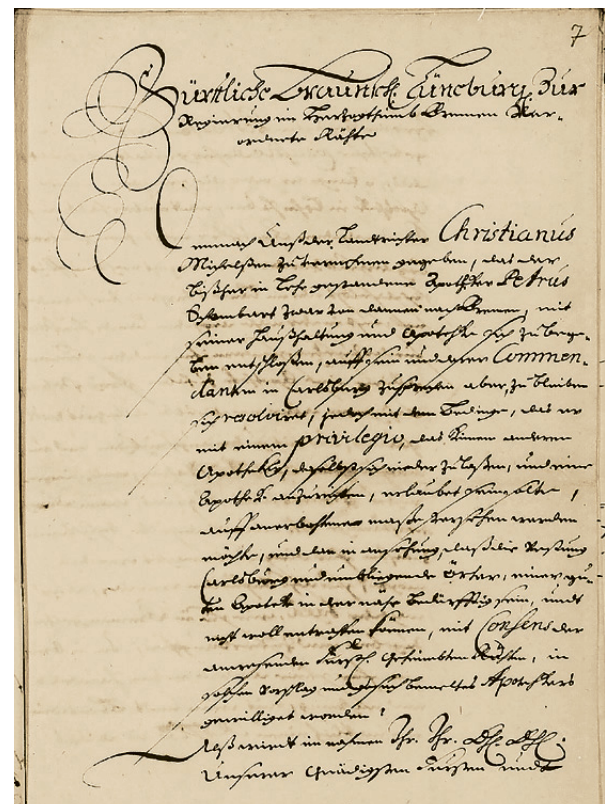 7
Fürstliche Braunsch. Lüneburg. Zur
Regierung im Hertzogthumb Bremen Ver-
ordnete Räthe
Demnach Unß der Landrichter Christianus
Michelßen zu vernehmen gegeben, das der
bißher in Lehe gestandene Apotheker Petrus
zwar von dannen nach Bremen, mit
seiner Haußhaltung und Apotheke sich zu bege-
ben entschloßen, auff sein und des Commen-
danten in Carlsburg zusprechen aber, zu bleiben
sich resolviret, jedoch mit dem Bedinge, das er
mit einem privilegio, das keinem anderen
Apotheker, daselbst sich nieder zu laßen, und eine
Apothek anzurichten, erlaubet sein solte,
auff maße versehen werden
möchte, und dan in ansehung, daß die Vestung
Carlsburg und umbligende örter, einer gu-
ten Apotek in der nähe bedürfftig sein, undt
nicht woll entrathen können, mit Consens der
anwesenden Fürstl. gesambten Räthen, in
solchen vorschlag und gesuch bemeltes Apothekers
gewilliget worden;
Alß wird im nahmen Ihr. Ihr.
Unserer Gnädigsten Fürsten undt